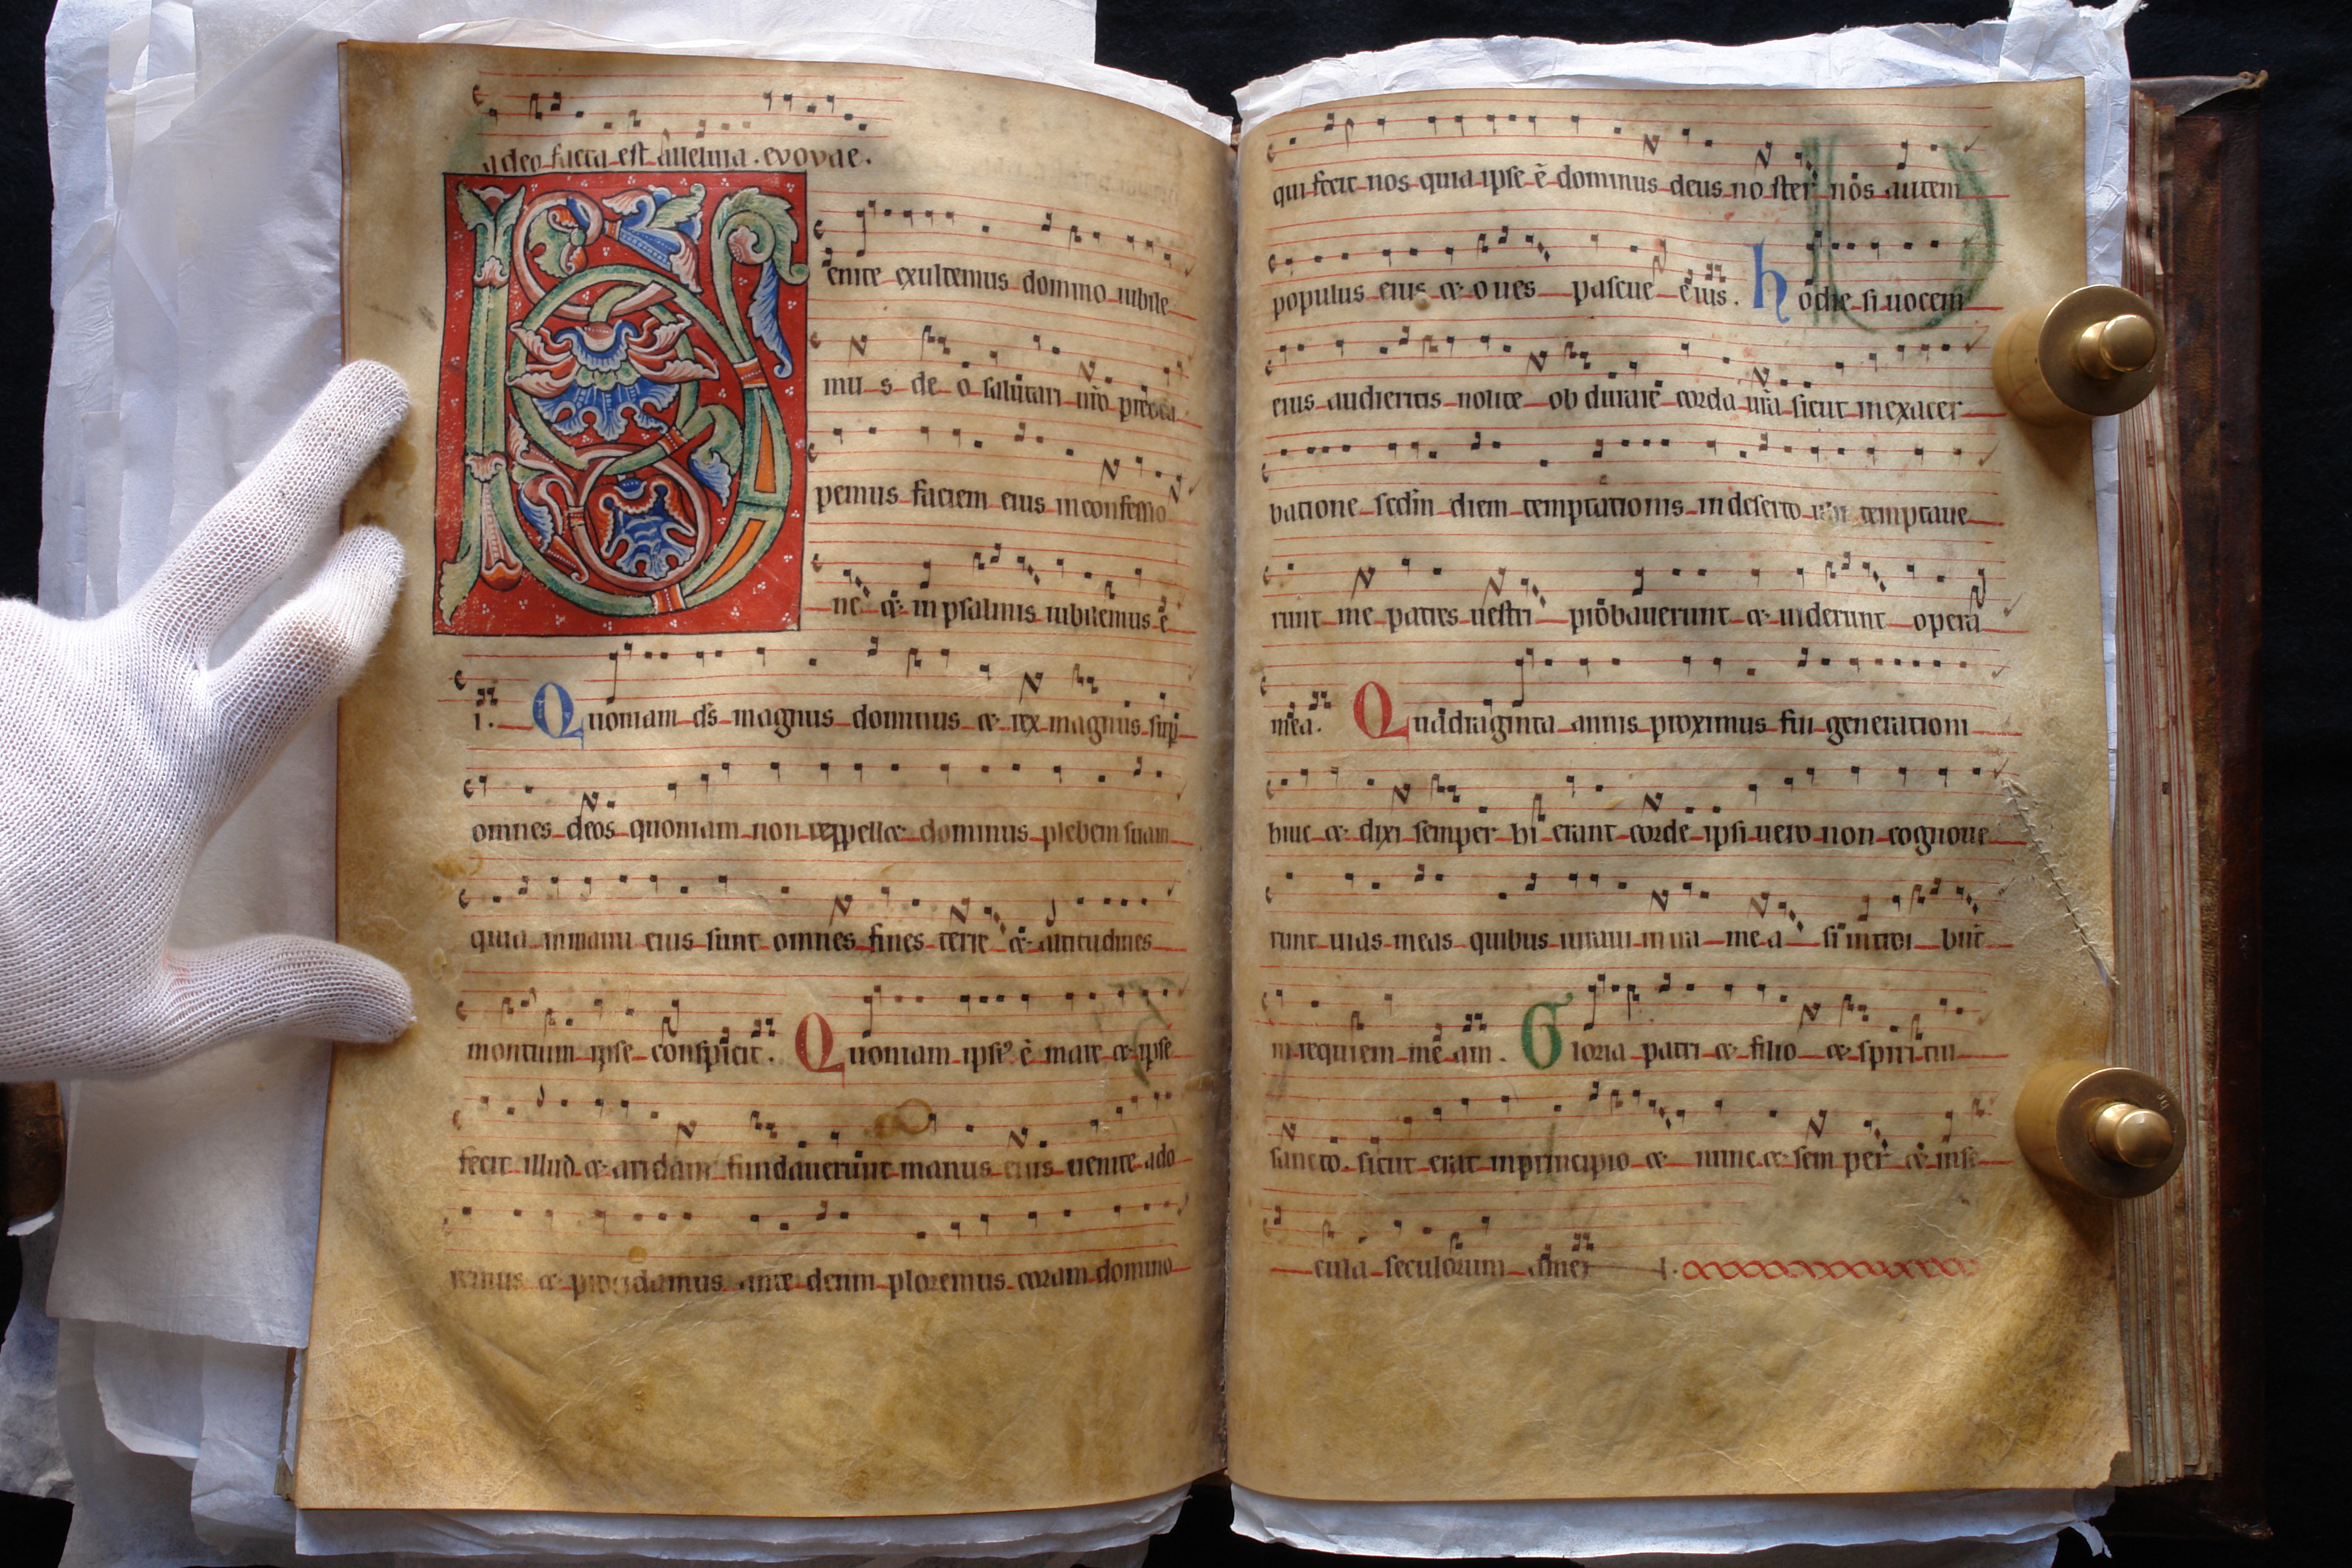 a deo facta est alleluia. evovae.
Venite exultemus domino iubile
mus deo salutari nr̃o preocu
pemus faciem eius in confessio
ne et in psalmis iubilemus e
i. Quoniam ds magnus dominus et rex magnus sup
omnes deos quoniam non reppellet dominus plebem suam
quia in manu eius sunt omnes fines terre et altitudines
montium ipse conspicit. Quoniam ipsiꝰ ẽ mare et ipse
fecit illud et aridam fundauerunt manus eius uenite ado
remus et procidamus ante deum ploremus coram domino
qui fecit nos quia ipse ẽ dominus deus noster nos autem
populus eius et oues pascue eius. hodie si uocem
eius audieritis nolite obdurare corda ur̃a sicut in exacer
batione sedm diem temptationis in deserto ubi temptaue
runt me patres uestri probauerunt et uiderunt opera
mea. Quadraginta annis proximus fui generationi
huic et dixi semper hi errant corde ipsi uero non cognoue
runt uias meas quibus iuraui in ira mea si introibunt
in requiem meam. Gloria patri et filio et spiritui
sancto. sicut erat in principio et nunc et semper et in se
cula seculorum amen.